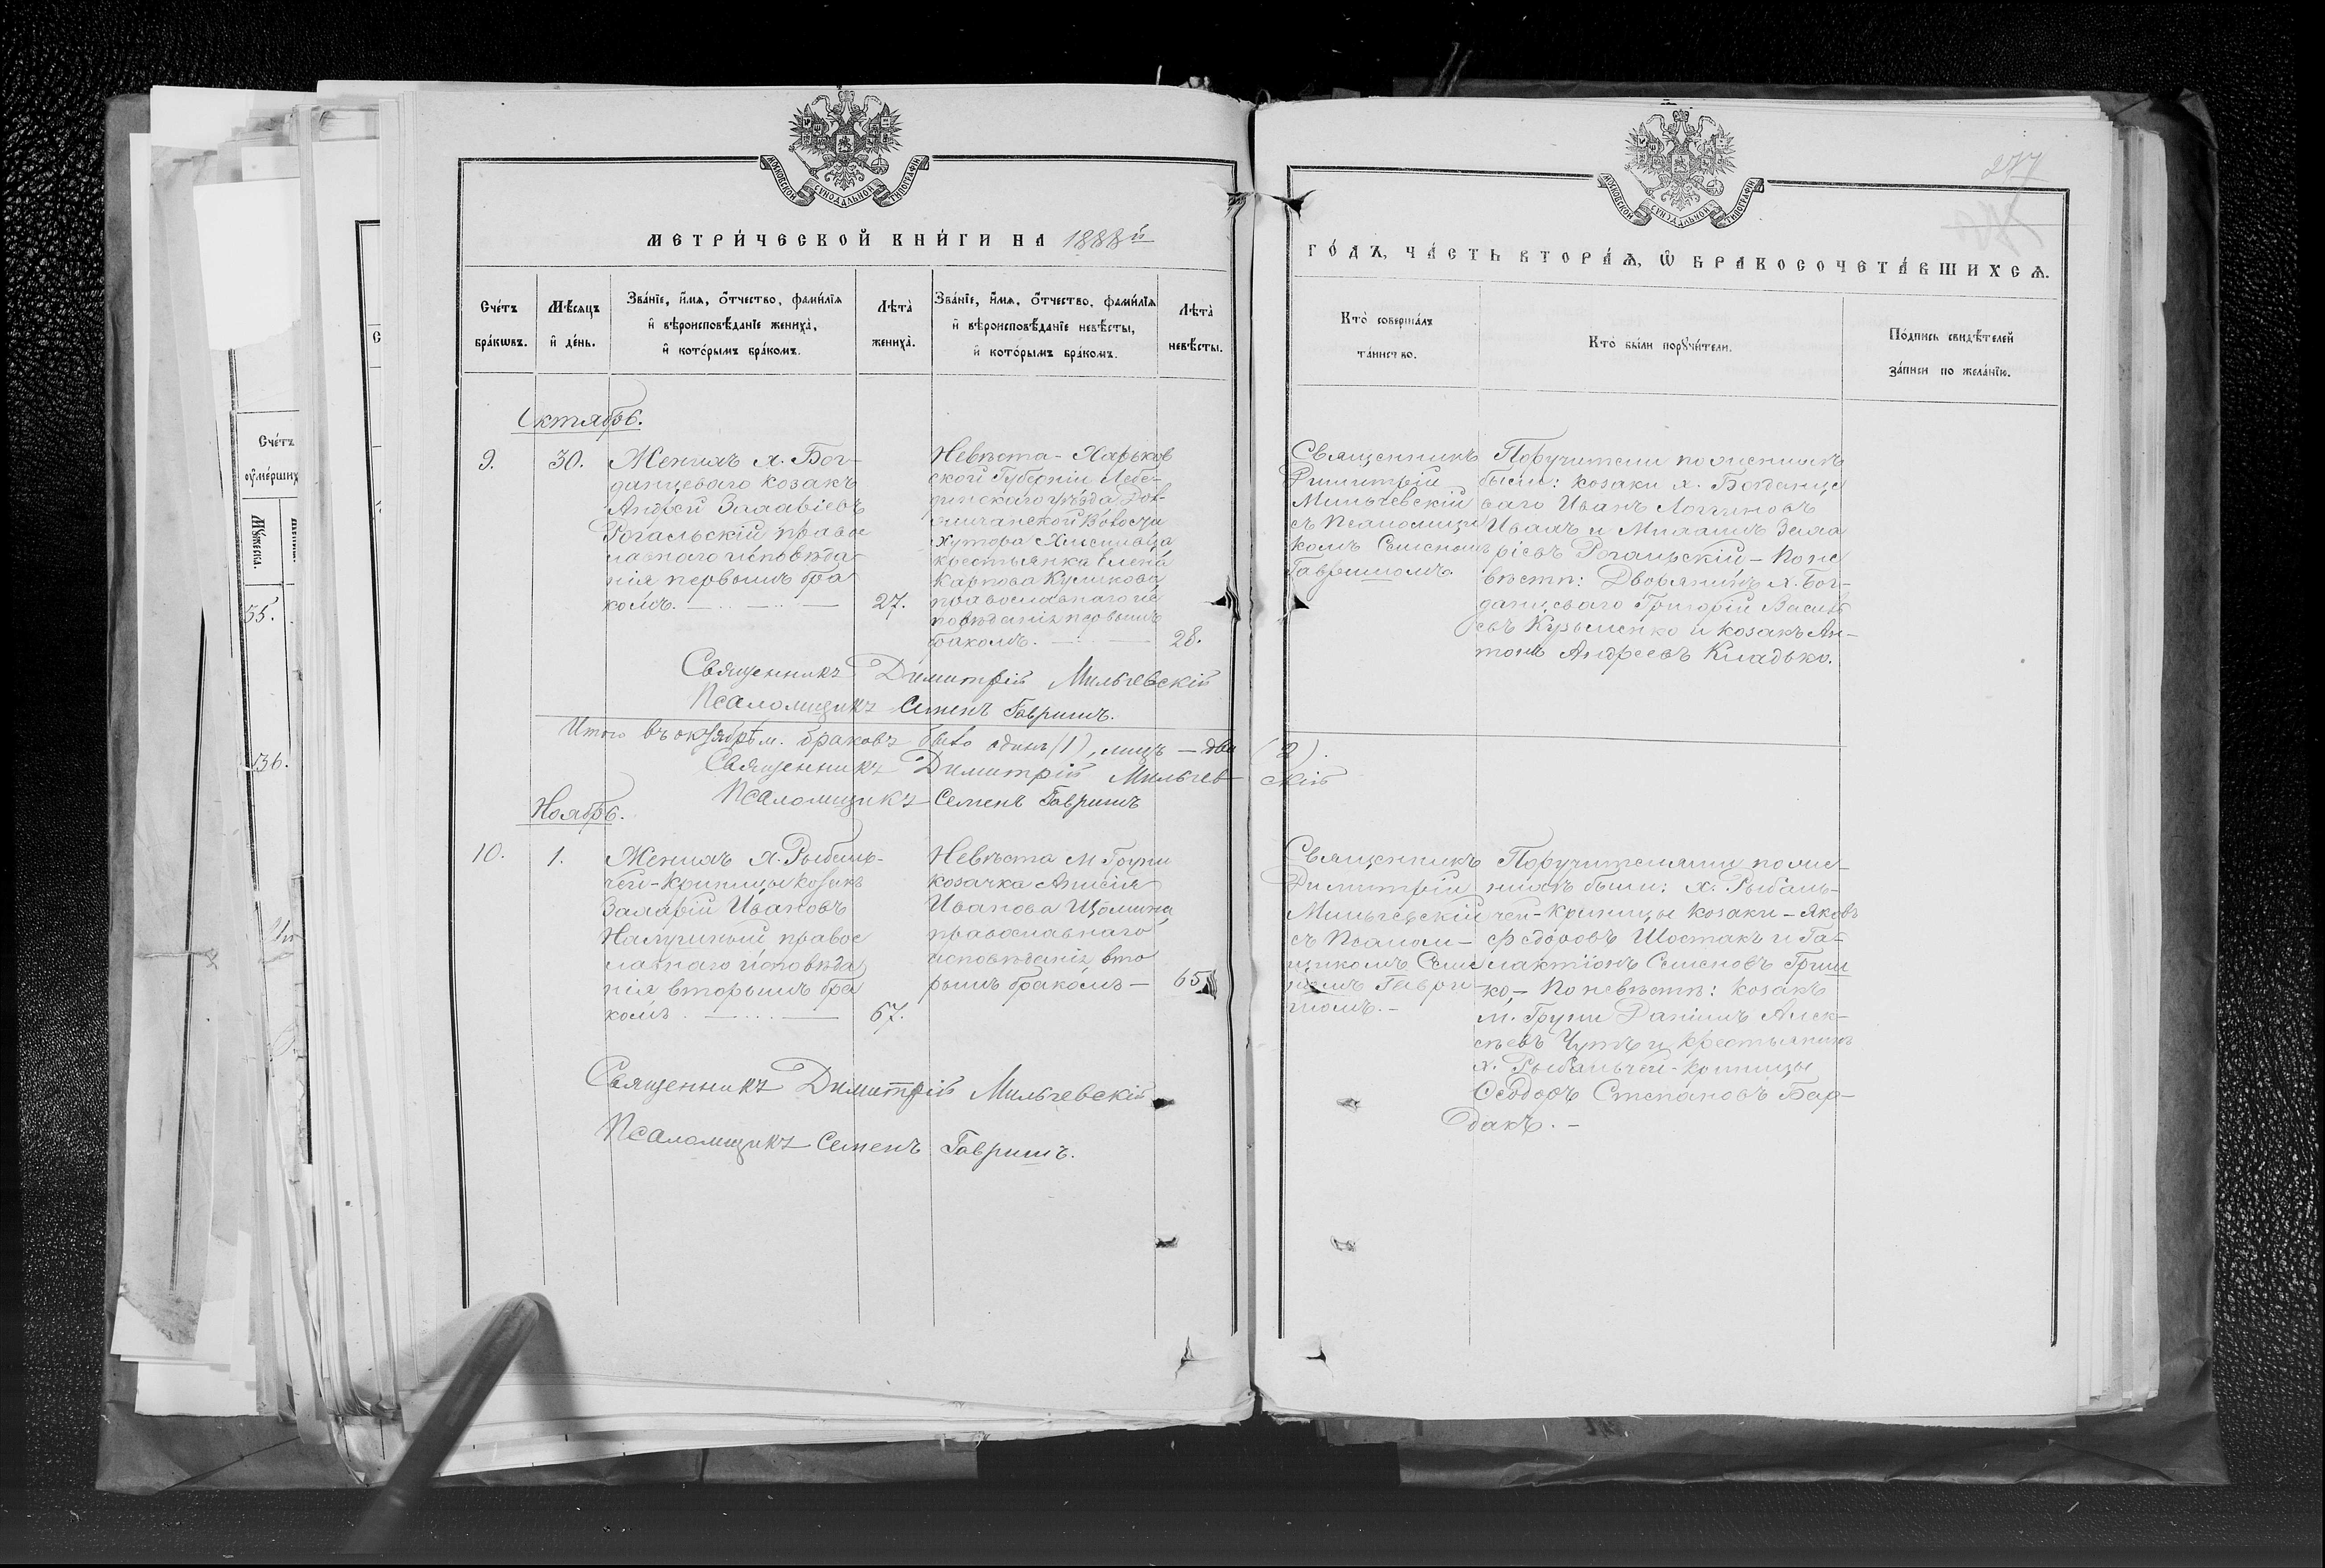 МОСКОВСКОЙ СѴНОДАЛЬНОЙ ТИПОГРАФІИ
МЕТРИ́ЧЕСКОЙ КНИ́ГИ НА 1888й
Сче́тъ бра́кѡвъ.
Мѣ́сяцъ и҆ де́нь.
Зва́нїе, и҆́мя, ѻ҆́тчество, фами́лїя
и҆ вѣроисповѣ́данїе жениха̀,
и҆ кото́рымъ бра́комъ.
Лѣта̀ жениха̀.
Зва́нїе, и҆́мя, ѻ҆́тчество, фами́лїя
и҆ вѣроисповѣ́данїе невѣ́сты,
и҆ кото́рымъ бра́комъ.
Лѣта̀ невѣ́сты.
Октябрь.
9.
30.
Женихъ х. Бог-
данцеваго козакъ
Андрей Захаріевъ
Рогальскій правос
лавнаго исповѣда-
нія первымъ бра
комъ.
27.
Невѣста - Харьков
ской Губерніи Лебе-
динскаго уѣзда
Волости
хутора
крестьянка Елена
Карпова Куликова
православнаго ис
повѣданія первымъ
бракомъ.
28.
Священникъ Димитрій Мильчевскій
Псаломщикъ Семенъ Гавришъ.
Итого въ октябрѣ м. браковъ было одинъ (1), лицъ — два (2).
Священникъ Димитрій Мильчев-скій
Псаломщикъ Семенъ Гавришъ
Ноябрь.
10.
1.
Женихъ х. Рыбаль-
чей-Криницы козакъ
Захарій Ивановъ
правос
лавнаго исповѣда
нія вторымъ бра
комъ.
67.
Невѣста м. Груни
козачка Анисія
Иванова
православнаго
исповѣданія вто
рымъ бракомъ —
65
Священникъ Димитрій Мильчевскій
Псаломщикъ Семенъ Гавришъ.
277
МОСКОВСКОЙ СѴНОДАЛЬНОЙ ТИПОГРАФІИ
ГО́ДЪ, ЧА́СТЬ ВТОРА́Я, Ѡ҆ БРАКОСОЧЕТА́ВШИХСЯ.
Кто̀ соверша́лъ
та́инство.
Кто̀ бы́ли порꙋчи́тели.
По́дпись свидѣ́телей
за́писи по жела́нїю.
Священникъ
Димитрій
Мильчевскій
съ Псаломщи
комъ Семеномъ
Гавришомъ.
Поручители по женихѣ
были: козаки х. Богданце
ваго Иванъ Логгиновъ
Ивахъ и Михаилъ Заха
ріевъ Рогальскій — По не
вѣстѣ: Дворянинъ х. Бог-
данцеваго Григорій Василь
евъ Кузьменко и козакъ Ан-
тонъ Андреевъ Кладько.
Священникъ
Димитрій
Мильчевскій
съ Псалом-
щикомъ Семе
номъ Гаври-
шомъ. —
Поручителями по же-
нихѣ были: х. Рыбаль-
чей-Криницы козаки — Яковъ
Федоровъ Шостакъ и Га-
лактіонъ Семеновъ Гриш
ко, — По невѣстѣ: козакъ
м. Груни Даніилъ Алек-
сѣевъ Чутъ и крестьянинъ
х. Рыбальчей-Криницы
Феодоръ Степановъ Бар-
дакъ. —
Сче́тъ
ᲂу҆ме́рших
Мꙋ́жеска.
35.
36.